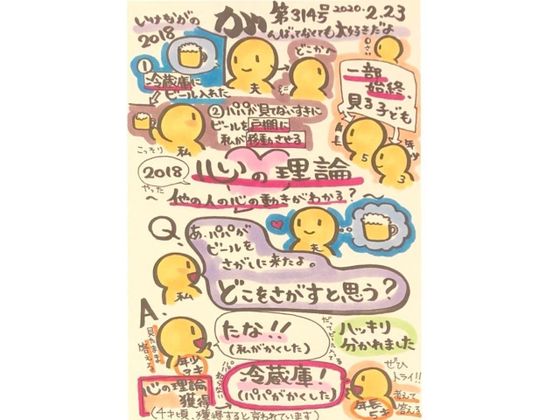 しけながの
2018
か
第314号 2020.2.23
んばってなくても大好きだよ
どこかへ
夫
① 冷蔵庫に
ビール入れた
②パパが見てないすきに
ビールを戸棚に
私が移動させる
こっそり
私
一部
始終、
見る子ども
5
3
2018
心の理論
やった
〜他の人の心の動きがわかる？
Q.
あ、パパが
ビールを
さがしに来たよ。
どこをさがすと思う？
夫
私
A.
たな!!
(私がかくした)
ハッキリ
分かれました
冷蔵庫！
(パパがかくした)
ぜひ
トライ!!
年少
3才
年長
5才
考えて
答える
心の理論
獲得
(4才頃、獲得すると言われています)